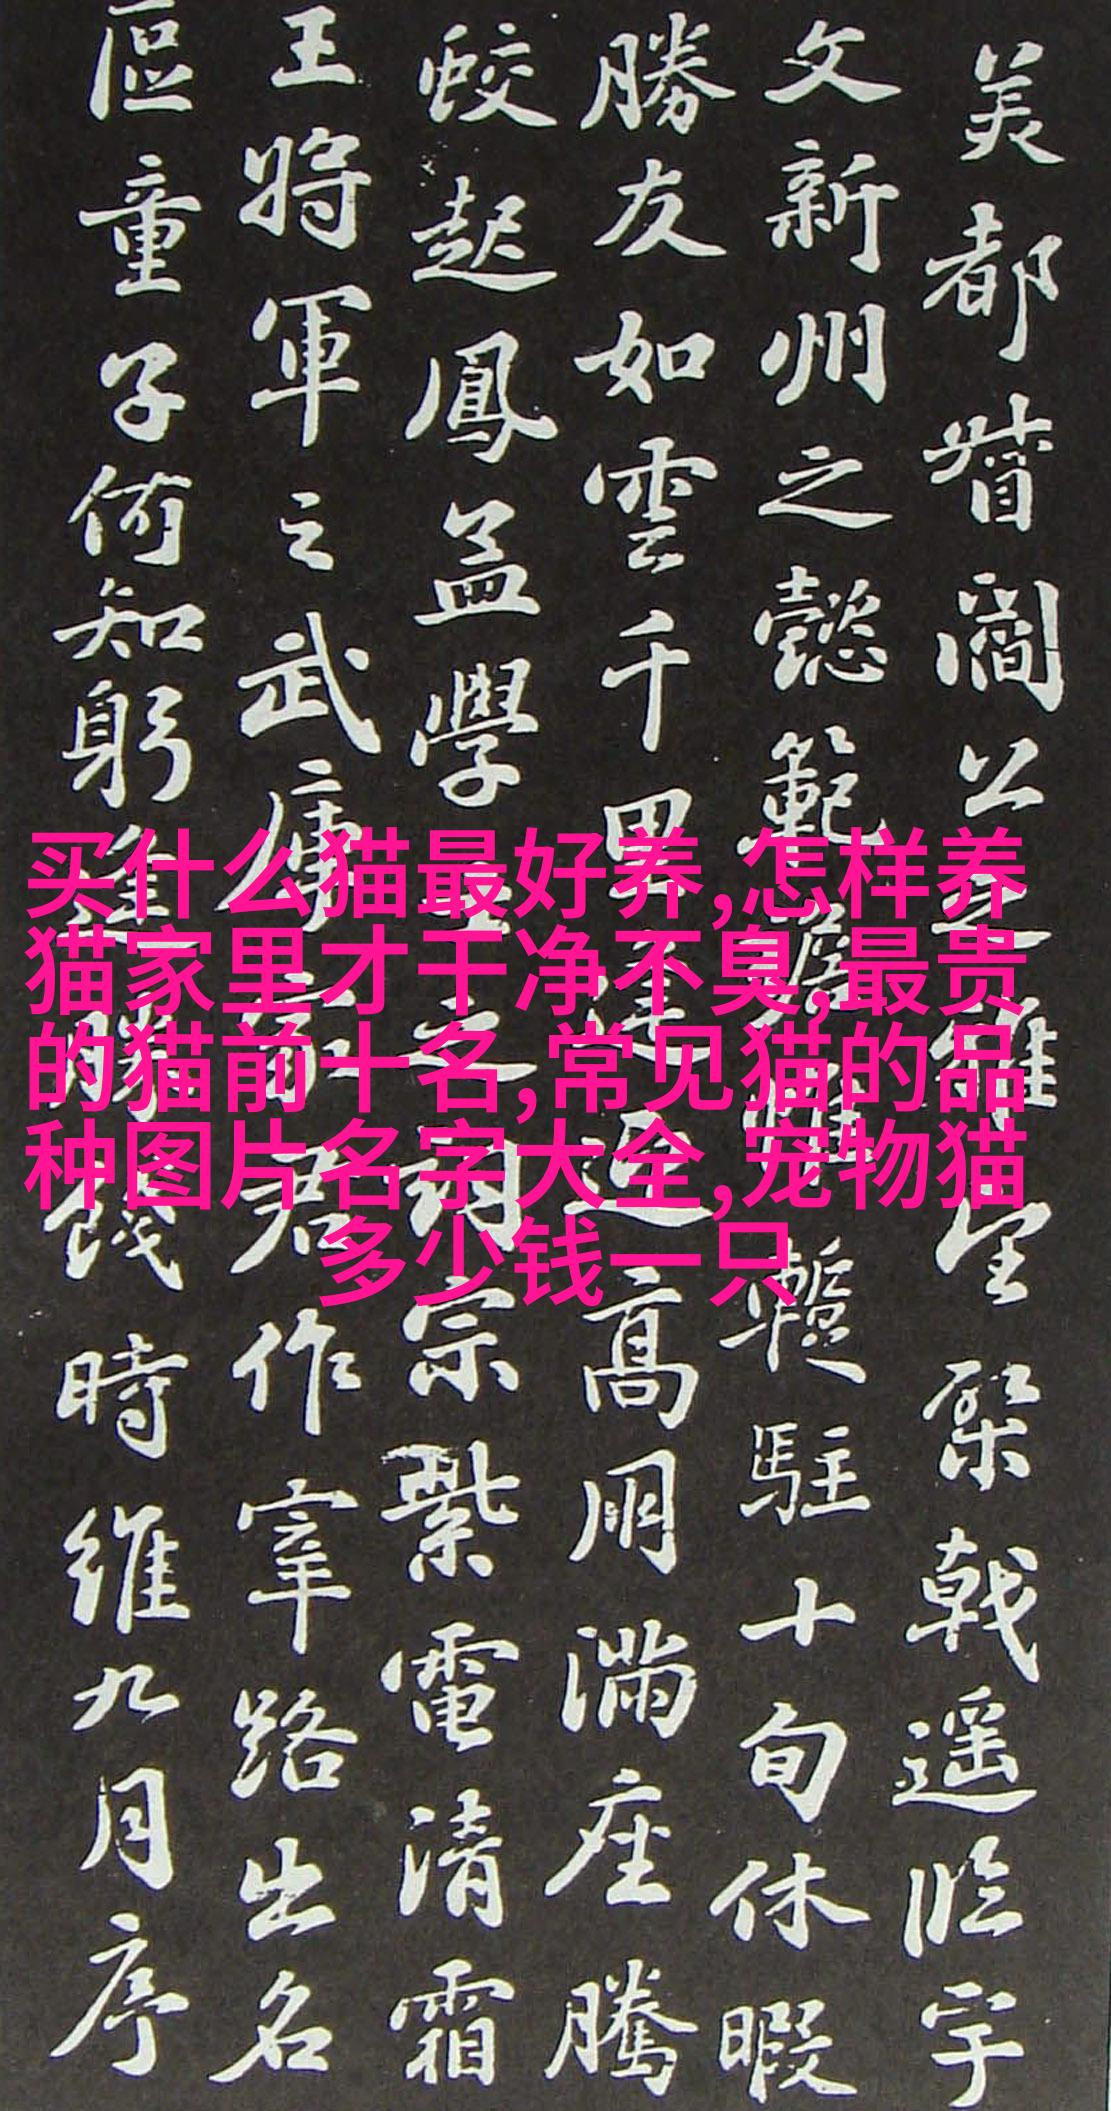 美都督閻公之雅望棨戟遥临宇
文新州之懿範襜帷暫駐十旬休暇
勝友如雲千里逢迎高朋滿座騰
蛟起鳳孟學士之詞宗紫電清霜
王將軍之武庫家君作宰路出名
區童子何知躬逢勝餞時維九月序
买什么猫最好养,怎样养
猫家里才干净不臭,最贵
的猫前十名,常见猫的品
种图片名字大全,宠物猫
多少钱一只